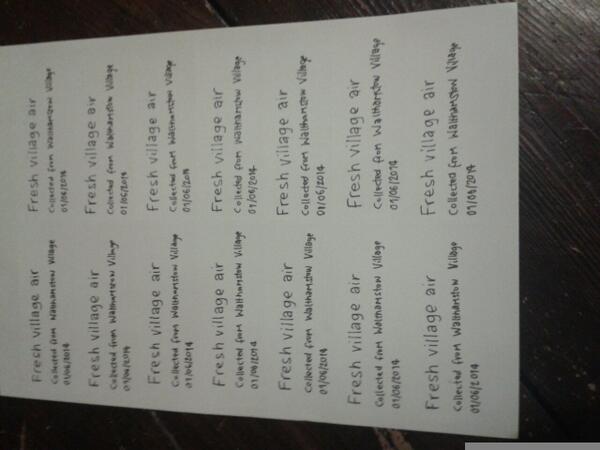 Fresh village air
Collected from Walthamstow Village
01/06/2014
Fresh village air
Collected from Walthamstow Village
01/06/2014
Fresh village air
Collected from Walthamstow Village
01/06/2014
Fresh village air
Collected from Walthamstow Village
01/06/2014
Fresh village air
Collected from Walthamstow Village
01/06/2014
Fresh village air
Collected from Walthamstow Village
01/06/2014
Fresh village air
Collected from Walthamstow Village
01/06/2014
Fresh village air
Collected from Walthamstow Village
01/06/2014
Fresh village air
Collected from Walthamstow Village
01/06/2014
Fresh village air
Collected from Walthamstow Village
01/06/2014
Fresh village air
Collected from Walthamstow Village
01/06/2014
Fresh village air
Collected from Walthamstow Village
01/06/2014
Fresh village air
Collected from Walthamstow Village
01/06/2014
Fresh village air
Collected from Walthamstow Village
01/06/2014